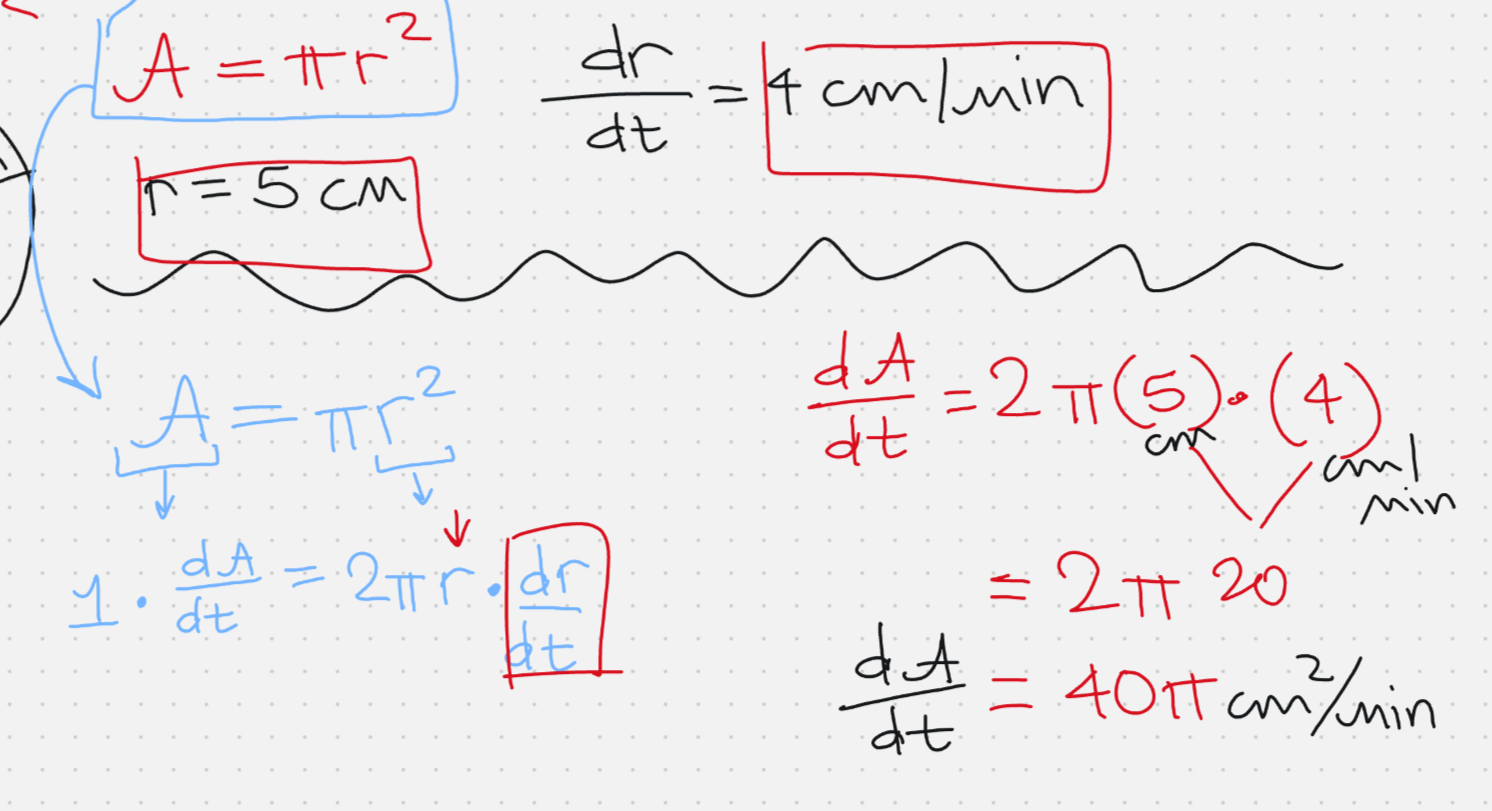 A = πr²
dr/dt = 4 cm/min
r = 5 cm
A = πr²
1 · dA/dt = 2πr · dr/dt
dA/dt = 2π(5) · (4)
cm cm/min
= 2π 20
dA/dt = 40π cm²/min